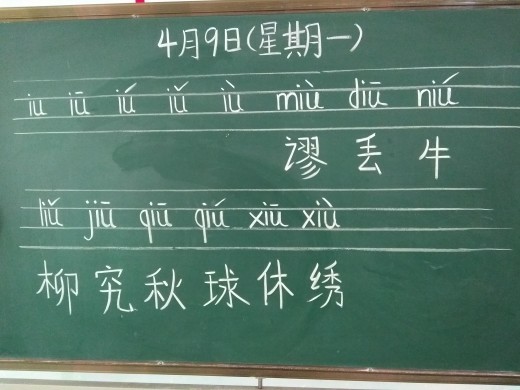 4月9日(星期一)
iu iū iú iǔ iù miù diū niú
谬 丢 牛
liǔ jiū qiū qiú xiū xiù
柳 究 秋 球 休 绣